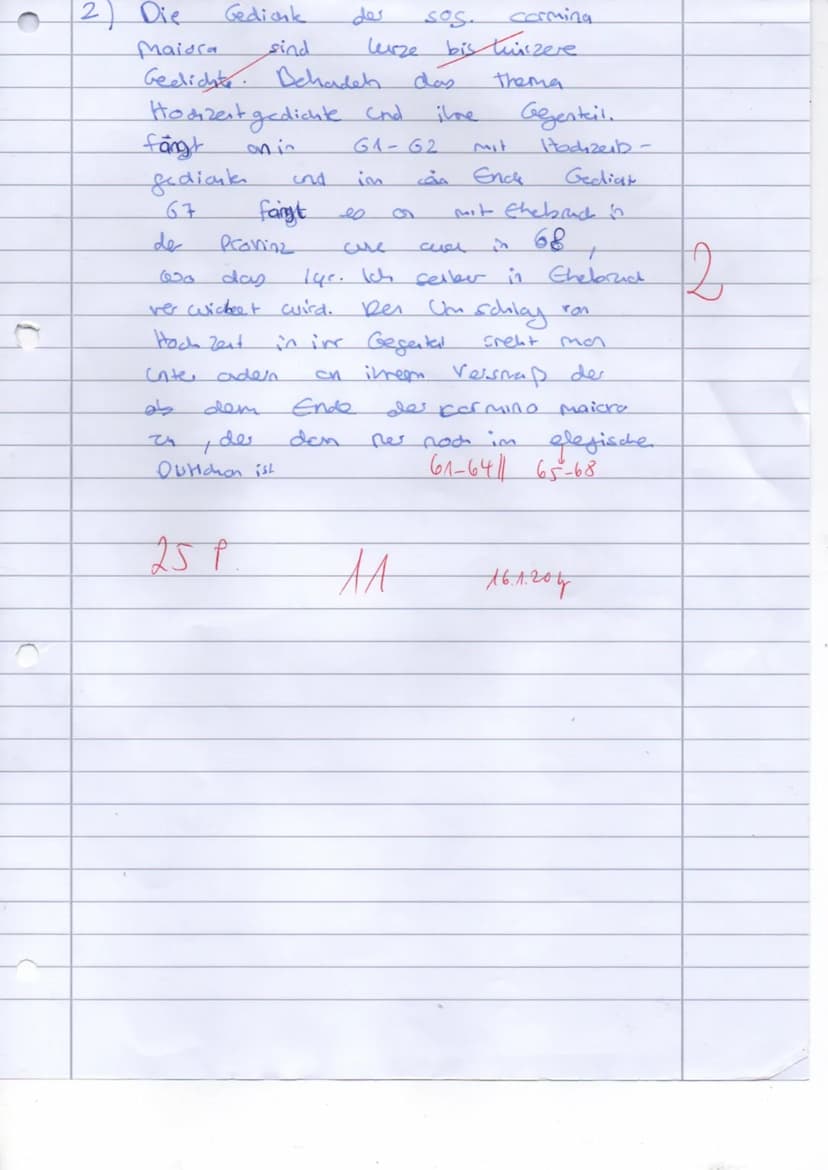 2) Die Gedichte der sog. carmina
Maiora sind kurze bis kürzere
Gedichte. Behadeln das Thema
Hochzeitgedichte und ihre Gegenteil.
fängt an in 61-62 mit Hochzeits-
gedichte und im Ende Gedicht
67 fängt es an mit Ehebruch in
der Provinz und auch in 68,
wo das lyr. Ich selber in Ehebruch
verwickelt wird. Den Umschlag von
Hochzeit in ihr Gegenteil sieht man
unter andern an ihrem Versmaß der
ab dem Ende der carmina maiora
, der dann nur noch im elegische
Distichon ist
61-64 || 65-68
2
25 P.
11
16.1.20